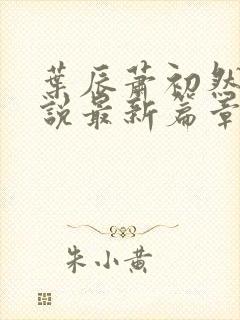 葉辰蕭初然
說最新篇章
朱小黃